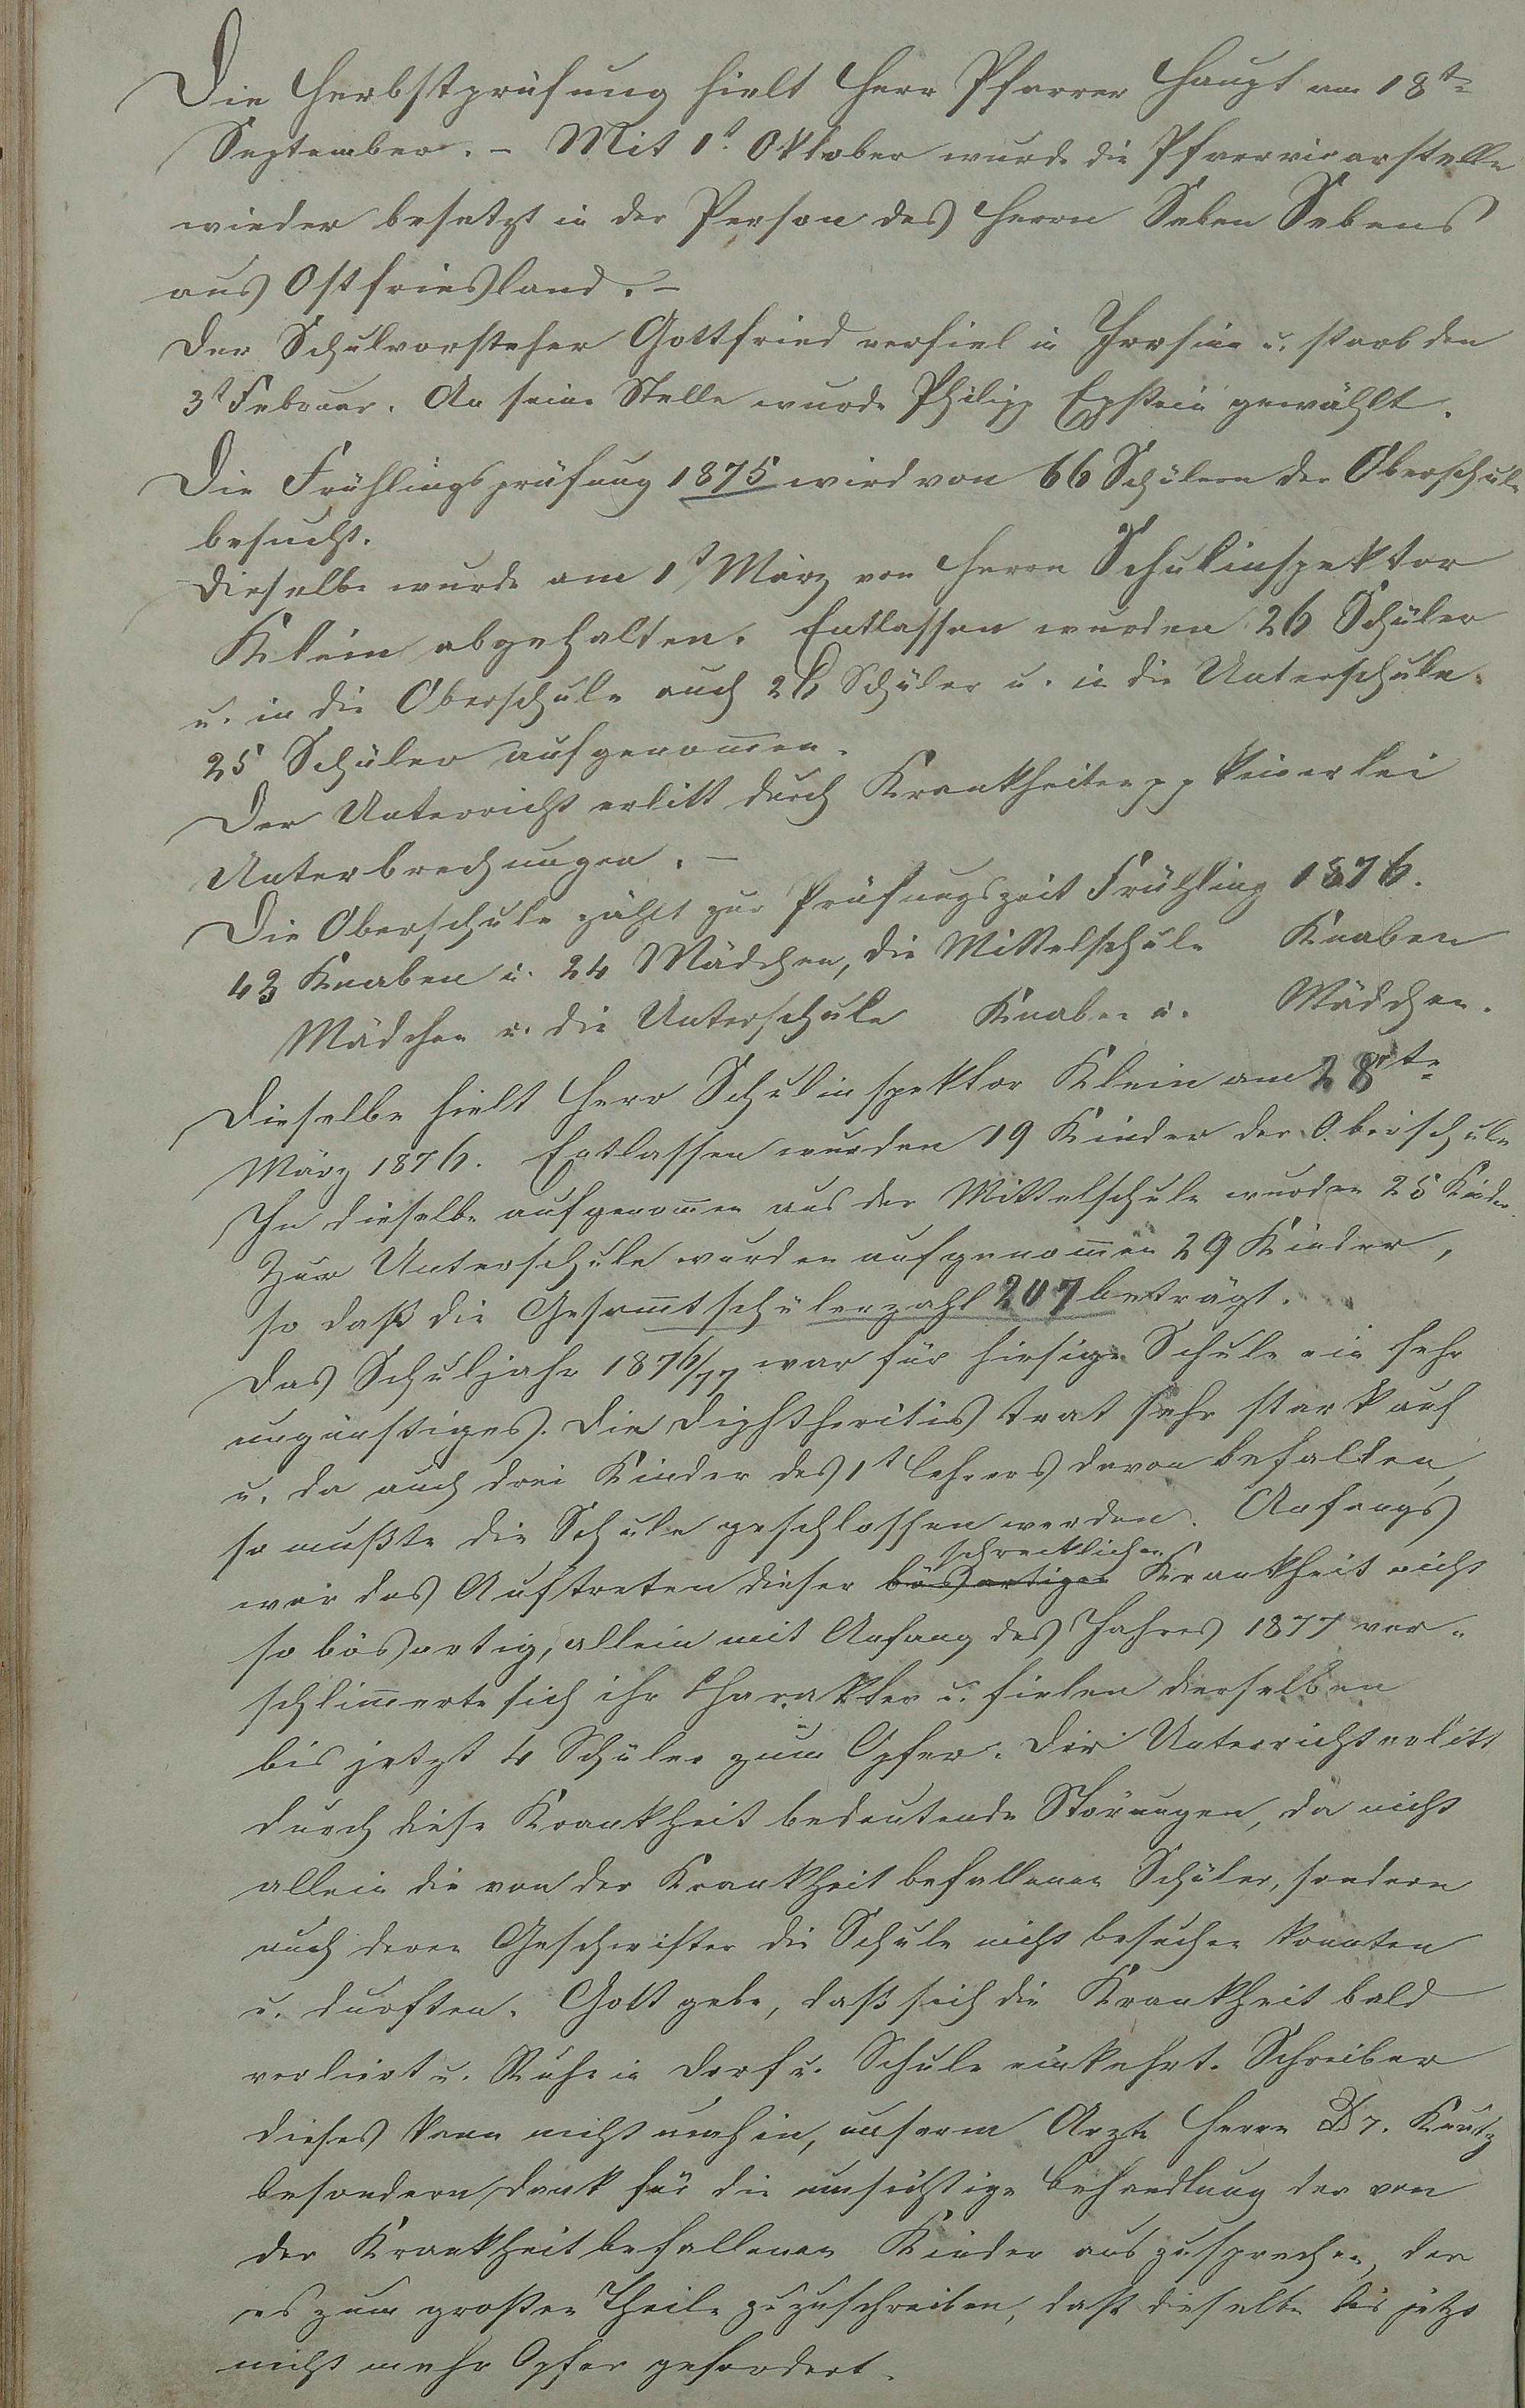 Die Herbstprüfung hielt Herr Pfarrer Haupt am 18te
September. - Mit 1t. Oktober wurde die Pfarrvicarstelle
wieder besetzt in der Person des Herrn Seben Sebens
aus Ostfriesland. -
Der Schulvorsteher Gottfried verfiel in Irrsinn u. starb den
3t Februar. An seine Stelle wurde Philipp Epstein gewählt.
Die Frühlingsprüfung 1875 wird von 66 Schülern der Oberschule
besucht.
Dieselbe wurde am 1t März von Herrn Schulinspektor
Klein abgehalten. Entlassen wurden 26 Schüler
u. in die Oberschule auch 26 Schüler u. in die Unterschule
25 Schüler aufgenom̄en.
Der Unterricht erlitt durch Krankheiten pp keinerlei
Unterbrechungen. -
Die Oberschule zählt zur Prüfungszeit Frühling 1876.
43 Knaben u. 24 Mädchen, die Mittelschule Knaben
Mädchen u. die Unterschule Knaben u. Mädchen.
Dieselbe hielt Herr Schulinspektor Klein am 28te
März 1876. Entlassen wurden 19 Kinder der Oberschule
In dieselbe aufgenom̄en aus der Mittelschule wurden 25 Kinder.
Zur Unterschule wurden aufgenom̄en 29 Kinder,
so daß die Gesam̄tschülerzahl 207 beträgt.
Das Schuljahr 1876/77 war für hiesige Schule ein sehr
ungünstiges. Die Diphtheritis trat sehr stark auf
u. da auch drei Kinder des 1t Lehrers davon befallen,
so mußte die Schule geschlossen werden. Anfangs
schrecklichen
war das Auftreten dieser bösartigen Krankheit nicht
so bösartig, allein mit Anfang des Jahres 1877 ver-
schlim̄erte sich ihr Charakter u. fielen derselben
bis jetzt 4 Schüler zum Opfer. Der Unterricht erlitt
durch diese Krankheit bedeutende Störungen, da nicht
allein die von der Krankheit befallenen Schüler, sondern
auch deren Geschwister die Schule nicht besuchen konnten
u. durften. Gott gebe, daß sich die Krankheit bald
verliert u. Ruhe in Dorf u. Schule einkehrt. Schreiber
dieses kann nicht umhin, unserm Arzte Herrn Dr.
besondern Dank für die umsichtige Behandlung der von
der Krankheit befallenen Kinder auszusprechen, der
es zum großen Theile zuzuschreiben, daß dieselbe bis jetzt
nicht mehr Opfer gefordert.